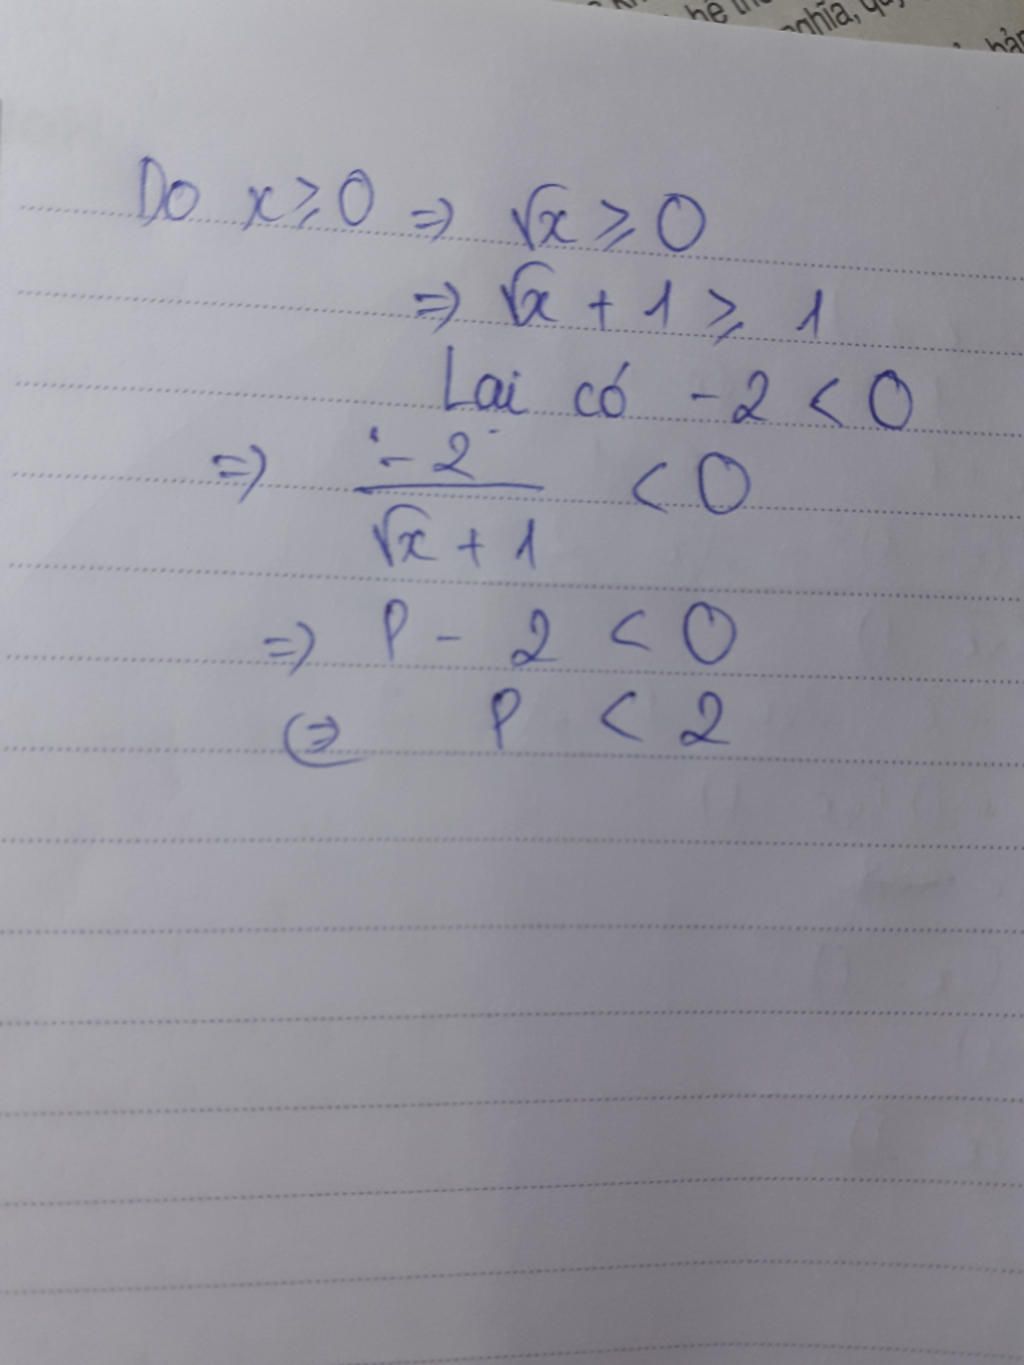 hệ
nghĩa,
Do x ≥ 0 => √x ≥ 0
=> √x + 1 ≥ 1
Lại có -2 < 0
=> -2 / (√x + 1) < 0
=> P - 2 < 0
<=> P < 2